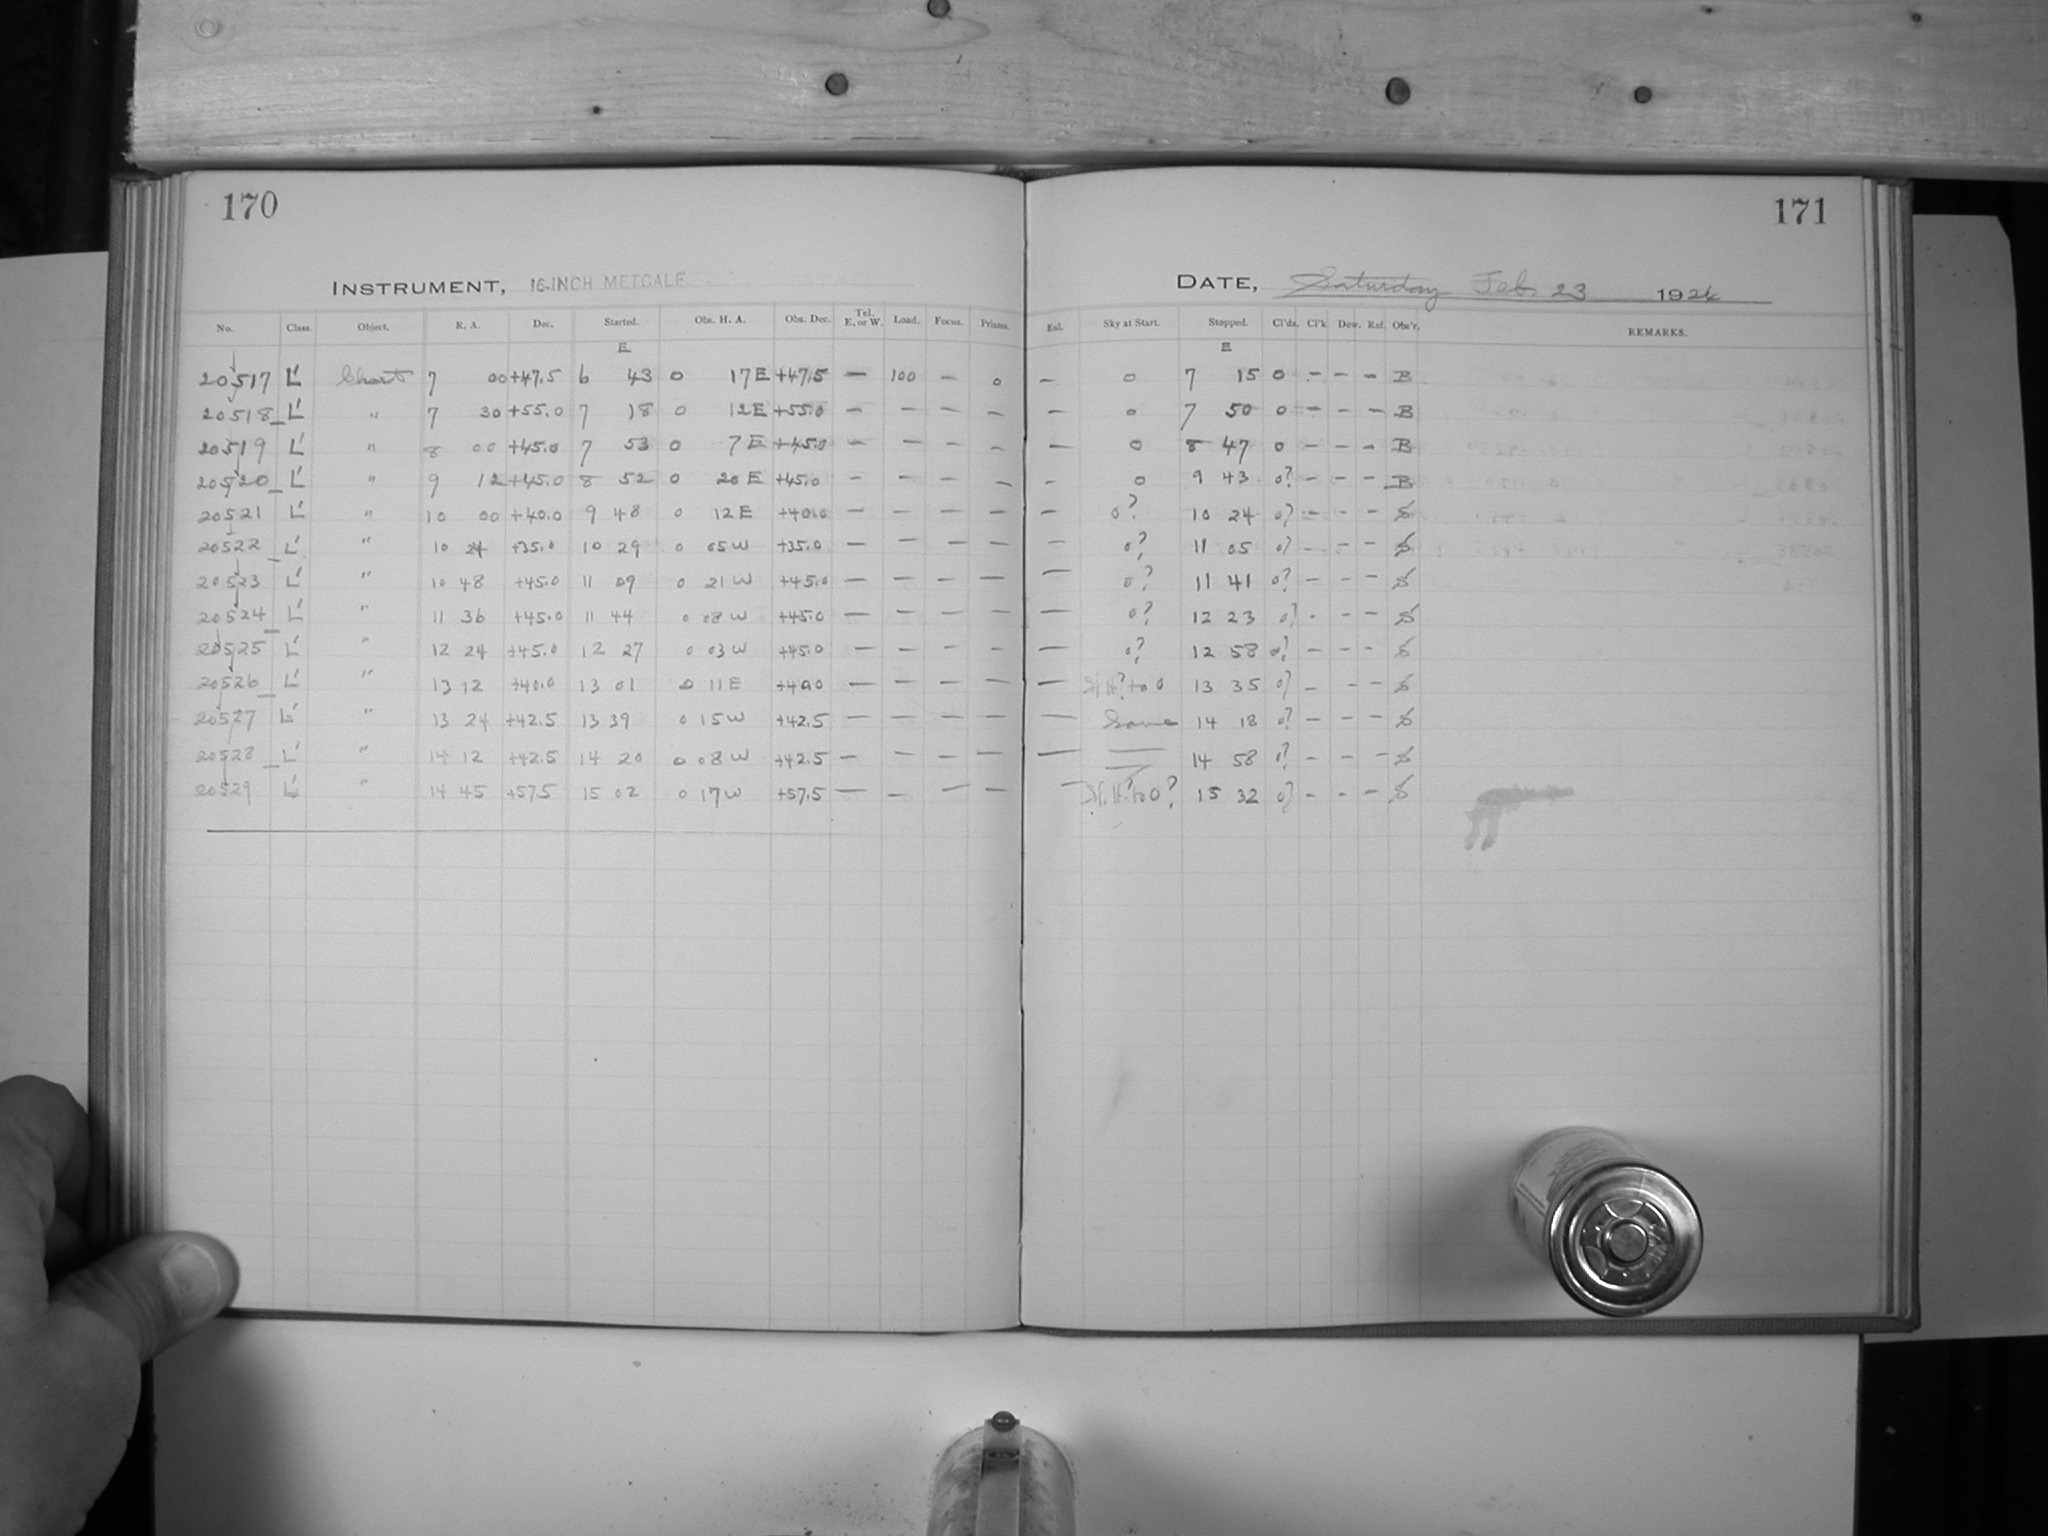 170
171
INSTRUMENT, 16-INCH METCALF
DATE, Saturday Feb. 23 1924
No. Class. Object. R. A. Dec. Started. Obs. H. A. Obs. Dec. Tel. E. or W. Load. Focus. Prisms. Eul. Sky at Start. Stopped. Cl'ds. Cl'k Dew. Ref. Obs'r. REMARKS.
E E
20517 L' Chart 7 00 +47.5 6 43 0 17 E +47.5 — 100 — 0 — 0 7 15 0 - - - B
20518 L' " 7 30 +55.0 7 18 0 12 E +55.0 — — — — — 0 7 50 0 - - - B
20519 L' " 8 00 +45.0 7 53 0 7 E +45.0 — — — — — 0 8 47 0 - - - B
20520 L' " 9 12 +45.0 8 52 0 20 E +45.0 — — — — — 0 9 43 0? - - - B
20521 L' " 10 00 +40.0 9 48 0 12 E +40.0 — — — — — 0? 10 24 0? - - - S
20522 L' " 10 24 +35.0 10 29 0 05 W +35.0 — — — — — 0? 11 05 0? - - - S
20523 L' " 10 48 +45.0 11 09 0 21 W +45.0 — — — — — 0? 11 41 0? - - - S
20524 L' " 11 36 +45.0 11 44 0 08 W +45.0 — — — — — 0? 12 23 0? - - - S
20525 L' " 12 24 +45.0 12 27 0 03 W +45.0 — — — — — 0? 12 58 0? - - - S
20526 L' " 13 12 +40.0 13 01 0 11 E +40.0 — — — — — lt? to 0 13 35 0? - - - S
20527 L' " 13 24 +42.5 13 39 0 15 W +42.5 — — — — — Same 14 18 0? - - - S
20528 L' " 14 12 +42.5 14 20 0 08 W +42.5 — — — — — 14 58 0? - - - S
20529 L' " 14 45 +57.5 15 02 0 17 W +57.5 — — — — — lt? to 0? 15 32 0? - - - S